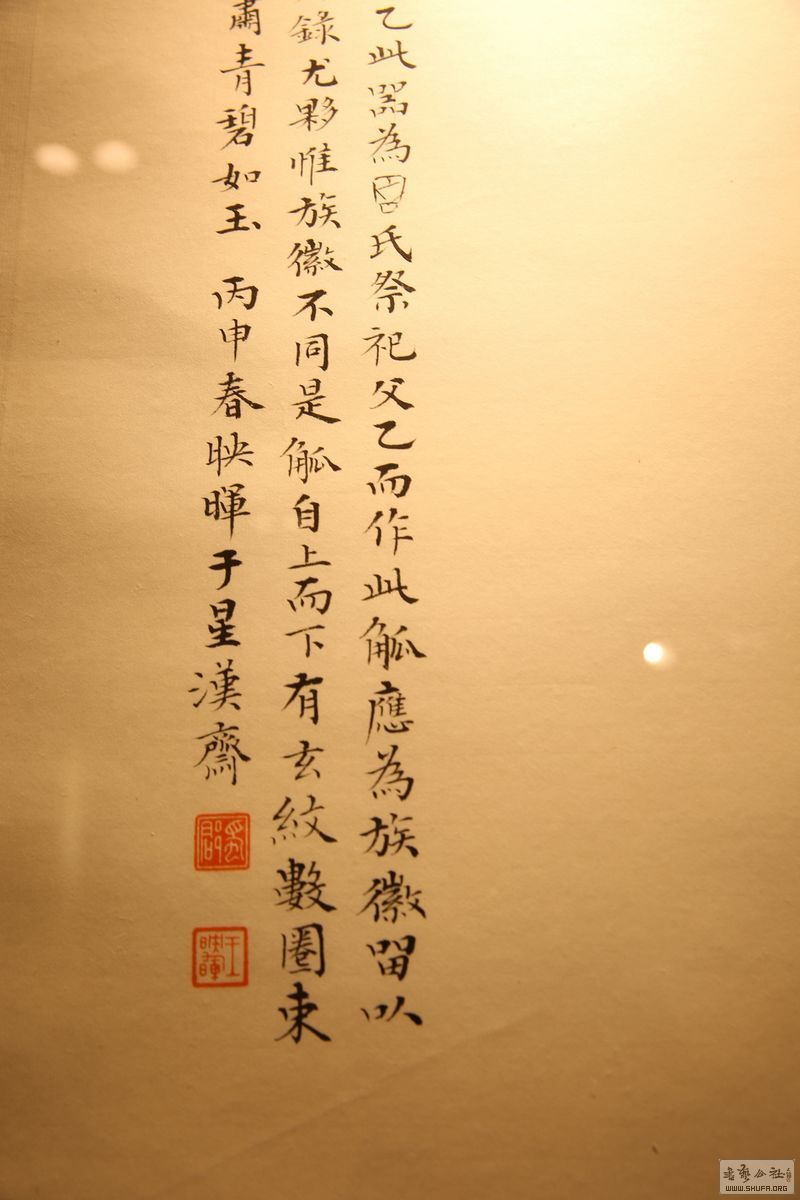 乙此器為氏祭祀父乙而作此觚應為族徽留以
錄尤夥惟族徽不同是觚自上而下有玄紋數圈束
青碧如玉 丙申春映暉于星漢齋
王映暉
書藝公社
WWW.SHUFA.ORG